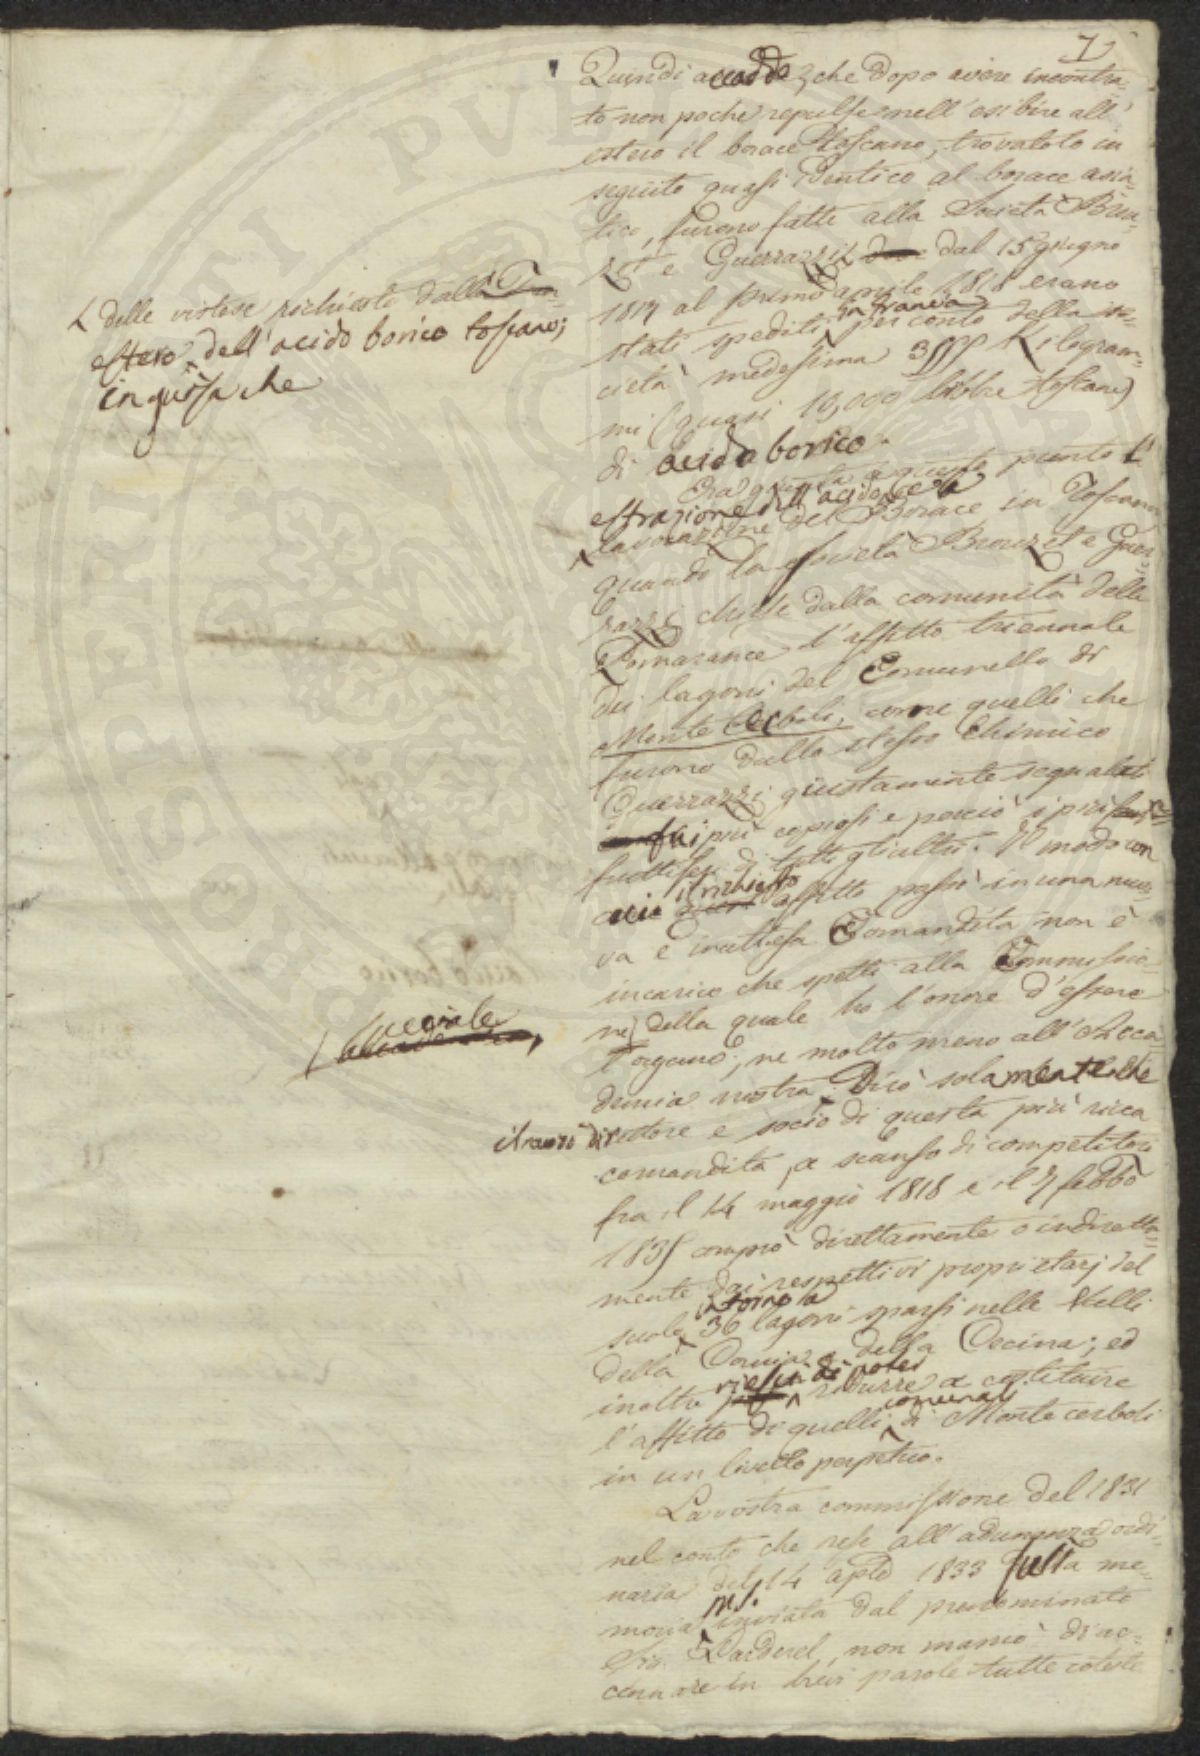 7
Quindi accadde, che dopo avere incontra-
to non poche repulse nell'esibire all'
estero il borace toscano, trovatolo in
seguito quasi identico al borace asia-
tico, furono fatte alla Società Brou-
zet e Guerrazzi dal 15 giugno
1817 al primo aprile 1818 erano
stati spediti in Francia per conto della so-
cietà medesima Kilogram-
mi (quasi 10,000 libbre toscane)
di acido borico.
Era giunta a questo punto l'
estrazione dell'acido, e la
lavorazione del Borace in Toscana
quando la società Brouzet e Guer-
razzi chiese dalla comunità delle
Pomarance l'affitto triennale
dei lagoni del Comunello di
Monte Cerboli, come quelli che
furono dallo stesso Chimico
Guerrazzi giustamente segnalati
più copiosi e perciò i più
fruttiferi di tutti gli altri. Il modo con
cui il richiesto affitto passò in una nuo-
va e inattesa Comandita non è
incarico che spetti alla Commissio-
ne, della quale ho l'onore d'essere
l'organo, ne molto meno all'Acca-
demia nostra. Dirò solamente che
il nuovo direttore e socio di questa più ricca
comandita, a scanso di competitori
fra il 14 maggio 1818 e il 7 febbo
1835 comprò direttamente o indiretta-
mente dai respettivi proprietarj del
suolo, intorno a 36 lagoni sparsi nelle Valli
della Cornia e della Cecina; ed
inoltre riesci di poter ridurre a costituire
l'affitto di quelli comunali di Monte cerboli
in un livello perpetuo.
La vostra commissione del 1831
nel conto che rese all'adunanza ordi-
naria del 14 aple 1833 sulla me-
moria ms. inviata dal prenominato
Sig. Larderel, non mancò di ac-
cennare in brevi parole tutte coteste
delle vistose richieste dall'
estero dell'acido borico toscano;
in guisa che